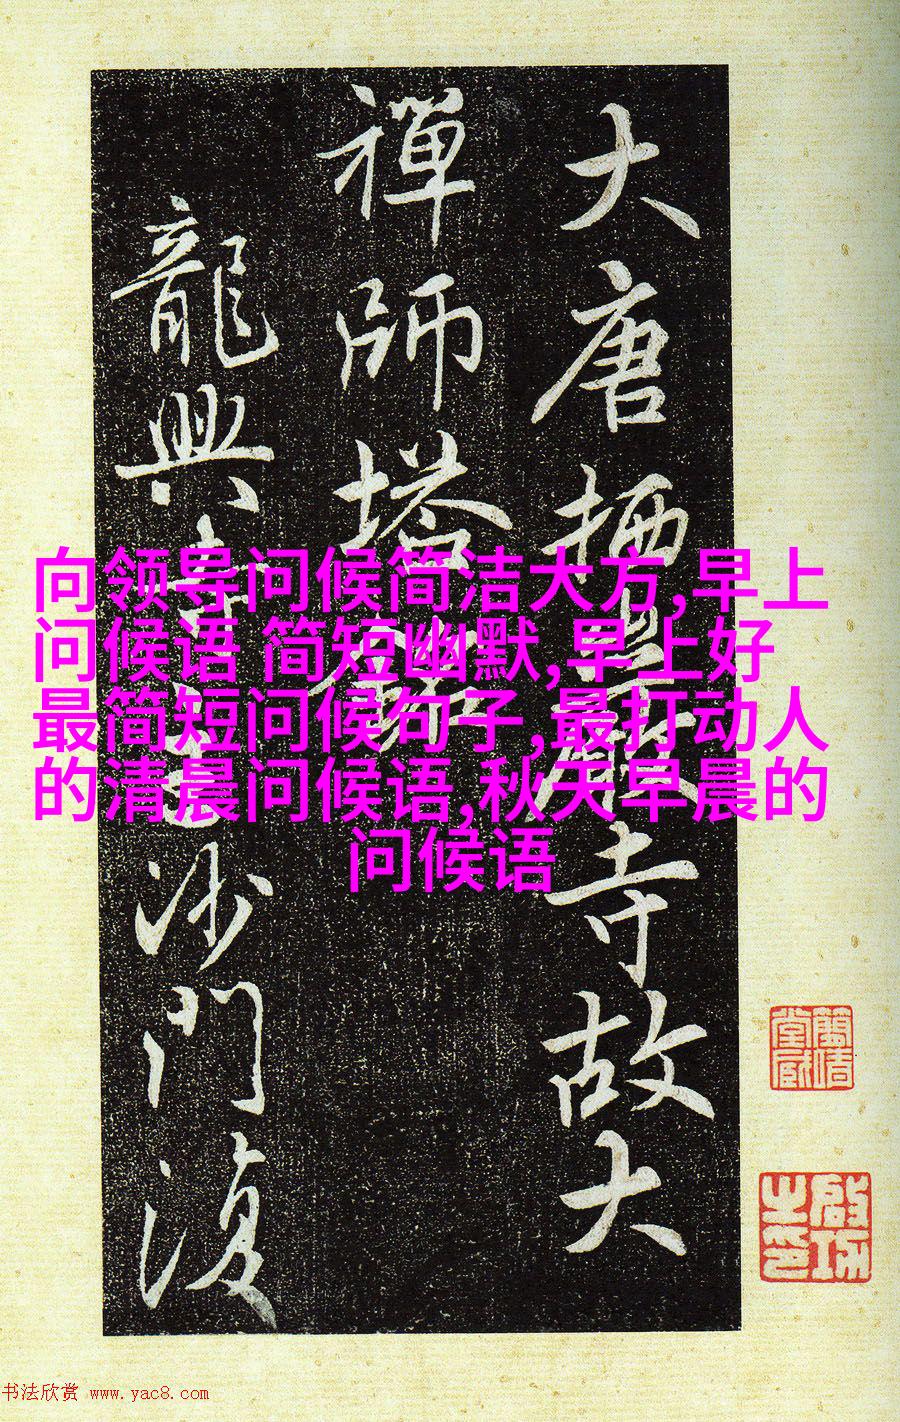 向领导问候简洁大方,早上
问候语 简短幽默,早上好
最简短问候句子,最打动人
的清晨问候语,秋天早晨的
问候语
大唐栖寺故大
禪師塔
龍興寺沙門復
书法欣赏 www.yac8.com